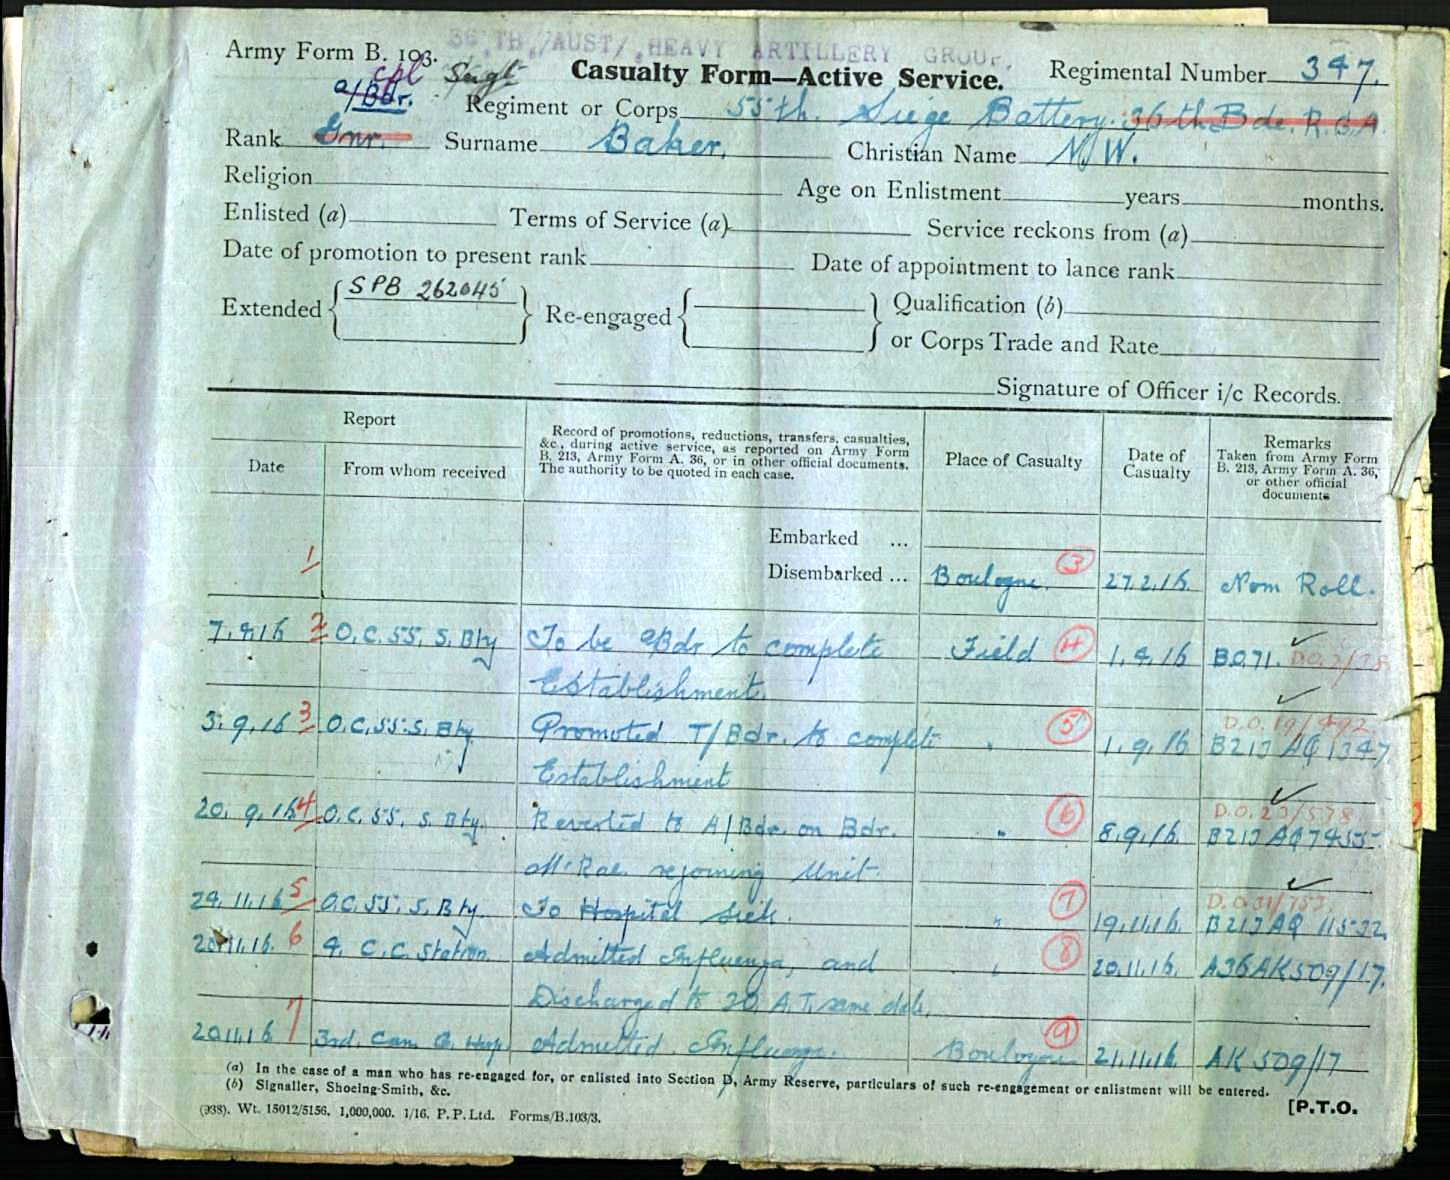 36TH /AUST/ HEAVY ARTILLERY GROUP.
Army Form B. 103.
Cpl Sergt
Casualty Form—Active Service.
Regimental Number 347.
a/Bdr.
Regiment or Corps 55th. Siege Battery. 36th Bde. R.G.A.
Rank Gnr. Surname Baker. Christian Name N.W.
Religion Age on Enlistment years months.
Enlisted (a) Terms of Service (a) Service reckons from (a)
Date of promotion to present rank Date of appointment to lance rank
Extended { SPB 262045 } Re-engaged { } Qualification (b)
or Corps Trade and Rate
Signature of Officer i/c Records.
Report
Date
From whom received
Record of promotions, reductions, transfers, casualties,
&c., during active service, as reported on Army Form
B. 213, Army Form A. 36, or in other official documents.
The authority to be quoted in each case.
Place of Casualty
Date of
Casualty
Remarks
Taken from Army Form
B. 213, Army Form A. 36,
or other official
documents
Embarked ...
1 Disembarked ... Boulogne. 3 27.2.16. Nom Roll.
7.4.16 2 O.C. 55. S. Bty To be a/Bdr to complete Field 4 1.4.16 B.O.71.
Establishment.
5.9.16 3 O.C. 55. S. Bty Promoted T/Bdr. to complete " 5 1.9.16 D.O. 19/492 B213 AQ 1347
Establishment
20.9.16 4 O.C. 55. S. Bty. Reverted to A/Bdr. on Bdr. " 6 8.9.16. D.O. 20/578 B213 AQ7455
McRae rejoining Unit.
24.11.16 5 O.C. 55. S. Bty. To Hospital Sick. " 7 19.11.16. D.O.31/753. B213 AQ 11522
20.11.16. 6 4. C.C. Station Admitted Influenza, and " 8 20.11.16. A36 AK 509/17.
Discharged to 20 A.T. same date.
20.11.16 7 3rd. Can. G. Hosp. Admitted. Influenza. Boulogne 9 21.11.16 AK 509/17
(a) In the case of a man who has re-engaged for, or enlisted into Section D, Army Reserve, particulars of such re-engagement or enlistment will be entered.
(b) Signaller, Shoeing-Smith, &c.
(938). Wt. 15012/5156. 1,000,000. 1/16. P. P. Ltd. Forms/B.103/3.
[P.T.O.